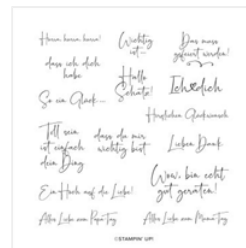 Hurra, hurra, hurra!
Wichtig
ist...
Das muss
gefeiert werden!
dass ich dich
habe
Hallo
Schatz!
Ich dich
So ein Glück...
Herzlichen Glückwunsch
Toll sein
ist einfach
dein Ding
dass du mir
wichtig bist
Lieben Dank
Wow, bin echt
gut geraten!
Ein Hoch auf die Liebe!
Alles Liebe zum PapaTag
Alles Liebe zum MamaTag
©STAMPIN' UP!